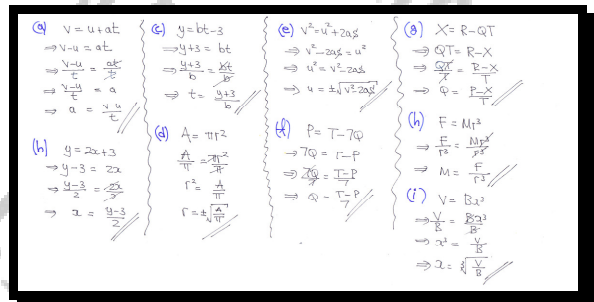 (a) v = u + at
⇒ v-u = at
⇒ v-u/t = at/t
⇒ v-u/t = a
⇒ a = v-u/t
(b) y = 2x+3
⇒ y-3 = 2x
⇒ y-3/2 = 2x/2
⇒ x = y-3/2
(c) y = bt-3
⇒ y+3 = bt
⇒ y+3/b = bt/b
⇒ t = y+3/b
(d) A = πr²
A/π = πr²/π
r² = A/π
r = ±√A/π
(e) v² = u² + 2as
⇒ v²-2as = u²
⇒ u² = v²-2as
⇒ u = ±√v²-2as
(f) P = T-7Q
⇒ 7Q = T-P
⇒ 7Q/7 = T-P/7
⇒ Q = T-P/7
(g) X = R-QT
⇒ QT = R-X
⇒ QT/T = R-X/T
⇒ Q = R-X/T
(h) F = Mr³
⇒ F/r³ = Mr³/r³
⇒ M = F/r³
(i) V = Bx³
⇒ V/B = Bx³/B
⇒ x³ = V/B
⇒ x = ∛V/B